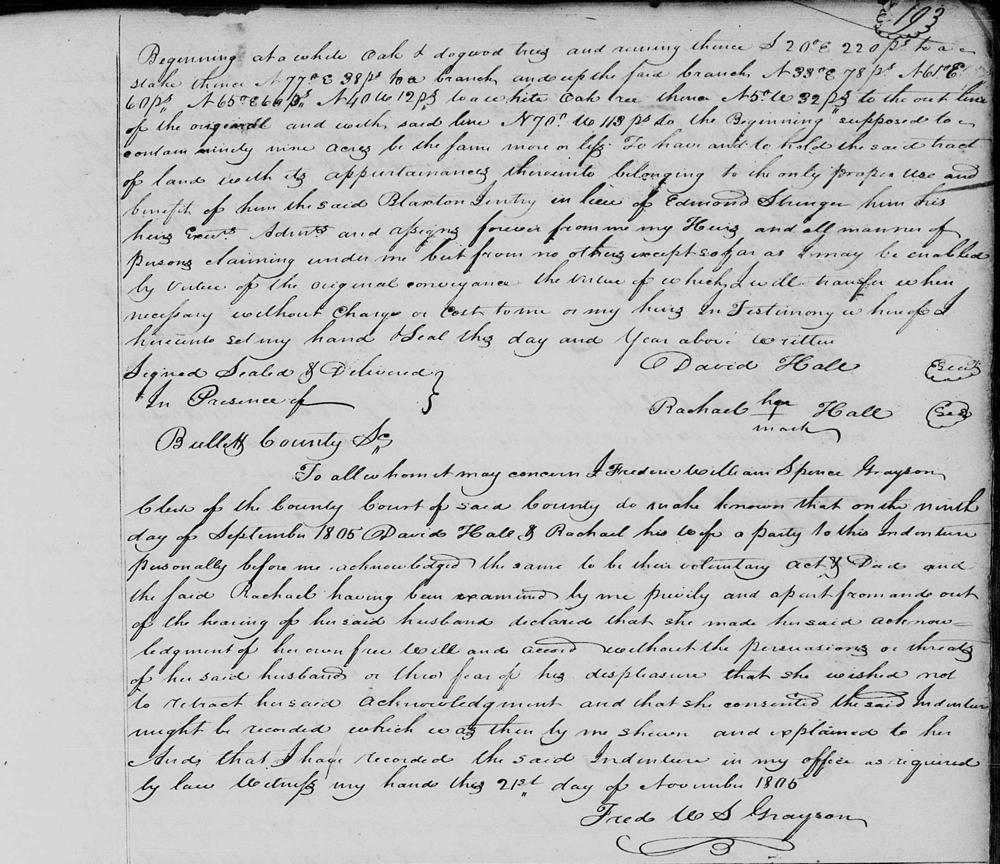 193
Beginning at a white Oak & dogwood trees and running thence S 20° E 220 ps to a
stake thence N 77° E 38 ps to a branch and up the said branch N 33° E 78 ps N 61° E
60 ps N 65° E 60 ps N 40 W 12 ps to a white Oak tree thence N 5° W 32 ps to the out line
of the original and with said line N 70° W 113 ps to the Beginning supposed to
contain ninety nine acres be the same more or less To have and to hold the said tract
of land with its appurtainances thereinto belonging to the only proper use and
benefit of him the said Blaxton Jentry in lieu of Edmond Stringer him his
heirs Exers. Admrs. and assigns forever from me my Heirs and all manner of
persons claiming under me but from no others except so far as I may be enabled
by virtue of the original conveyance the virtue of which I will transfer when
necessary without Charge or Cost to me or my heirs In Testimony whereof I
hereunto set my hand & Seal this day and Year above written
Signed Sealed & Delivered } David Hall Seal
In Presence of } Rachael her mark Hall Seal
Bullett County Sc
To all whom it may concern I Frederic William Spence Grayson
Clerk of the County Court of said County do make known that on the ninth
day of September 1805 David Hall & Rachael his wife a party to this Indenture
personally before me acknowledged the same to be their voluntary act & Deed and
the said Rachael having been examined by me privily and apart from and out
of the hearing of her said husband declared that she made her said acknow-
ledgment of her own free will and accord without the persuasions or threats
of her said husband or thro fear of his displeasure that she wished not
to retract her said acknowledgment and that she consented the said Indenture
might be recorded which was then by me shewn and explained to her
And that I have recorded the said Indenture in my office as required
by law Witness my hand this 21st day of November 1805
Fred W S Grayson